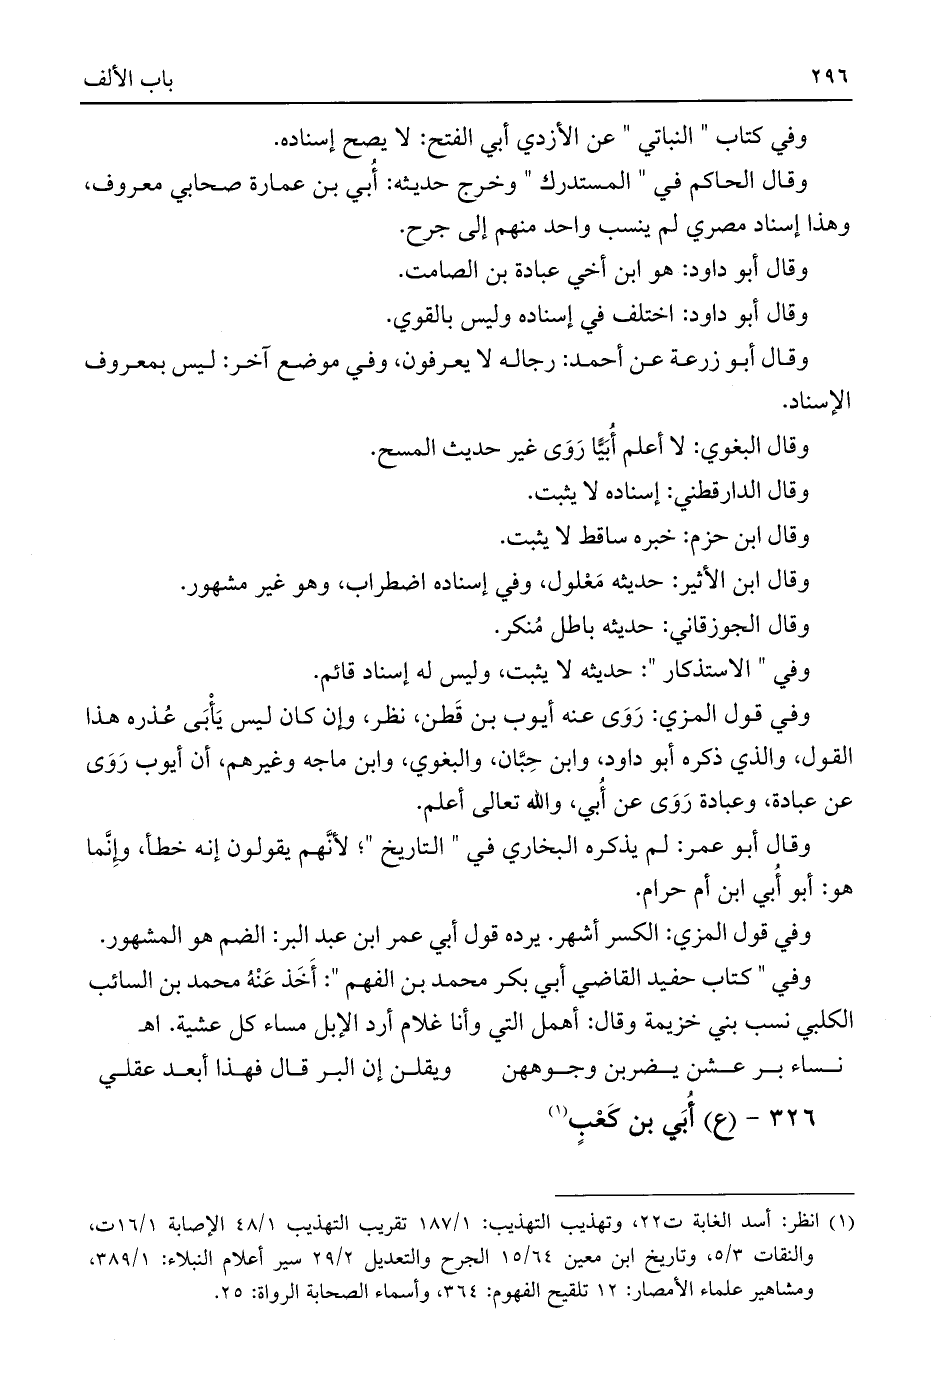 ٢٩٦ باب الألف
وفي كتاب " النباتي " عن الأزدي أبي الفتح: لا يصح إسناده.
وقال الحاكم في " المستدرك " وخرج حديثه: أُبي بن عمارة صحابي معروف،
وهذا إسناد مصري لم ينسب واحد منهم إلى جرح.
وقال أبو داود: هو ابن أخي عبادة بن الصامت.
وقال أبو داود: اختلف في إسناده وليس بالقوي.
وقال أبو زرعة عن أحمد: رجاله لا يعرفون، وفي موضع آخر: ليس بمعروف
الإسناد.
وقال البغوي: لا أعلم أُبَيًّا رَوَى غير حديث المسح.
وقال الدارقطني: إسناده لا يثبت.
وقال ابن حزم: خبره ساقط لا يثبت.
وقال ابن الأثير: حديثه مَعْلول، وفي إسناده اضطراب، وهو غير مشهور.
وقال الجوزقاني: حديثه باطل مُنكر.
وفي " الاستذكار ": حديثه لا يثبت، وليس له إسناد قائم.
وفي قول المزي: رَوَى عنه أيوب بن قَطَن، نظر، وإن كان ليس يَأْبَى عُذره هذا
القول، والذي ذكره أبو داود، وابن حِبَّان، والبغوي، وابن ماجه وغيرهم، أن أيوب رَوَى
عن عبادة، وعبادة رَوَى عن أُبي، والله تعالى أعلم.
وقال أبو عمر: لم يذكره البخاري في " التاريخ "؛ لأنَّهم يقولون إنه خطأ، وإِنَّما
هو: أبو أُبي ابن أم حرام.
وفي قول المزي: الكسر أشهر. يرده قول أبي عمر ابن عبد البر: الضم هو المشهور.
وفي " كتاب حفيد القاضي أبي بكر محمد بن الفهم ": أَخَذ عَنْهُ محمد بن السائب
الكلبي نسب بني خزيمة وقال: أهمل التي وأنا غلام أرد الإبل مساء كل عشية. اهـ
نساء بر عشن يضربن وجوههن ويقلن إن البر قال فهذا أبعد عقلي
٣٢٦ - (ع) أُبَي بن كَعْبٍ(١)
(١) انظر: أسد الغابة ت٢٢، وتهذيب التهذيب: ١٨٧/١ تقريب التهذيب ٤٨/١ الإصابة ١٦/١ت،
والثقات ٥/٣، وتاريخ ابن معين ١٥/٦٤ الجرح والتعديل ٢٩/٢ سير أعلام النبلاء: ٣٨٩/١،
ومشاهير علماء الأمصار: ١٢ تلقيح الفهوم: ٣٦٤، وأسماء الصحابة الرواة: ٢٥.